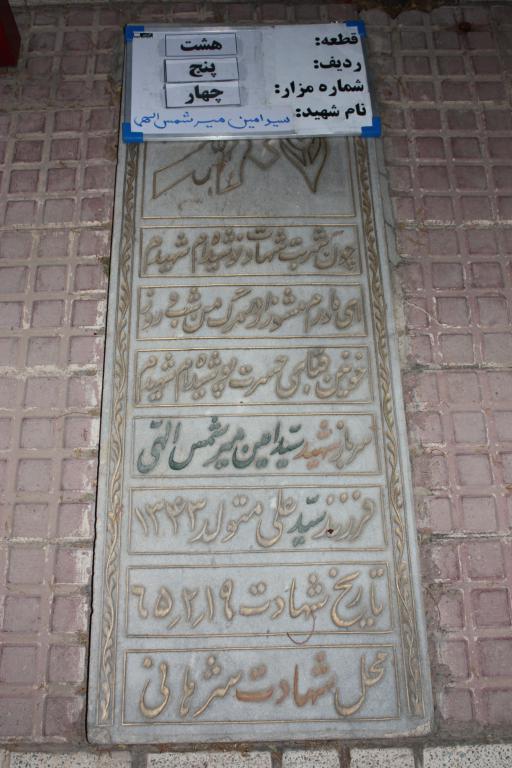 قطعه: هشت
ردیف: پنج
شماره مزار: چهار
نام شهید: سید امین میرشمس الهی
چون شربت شهادت نوشیده‌ام شهیدم
ای مادرم مسوزان در مرگ من شب و روز
خونین قبای حسرت پوشیده‌ام شهیدم
سرباز شهید سید امین میرشمس الهی
فرزند سید علی متولد ۱۳۴۳
تاریخ شهادت ۱۹٫۲٫۶۵
محل شهادت شرهانی